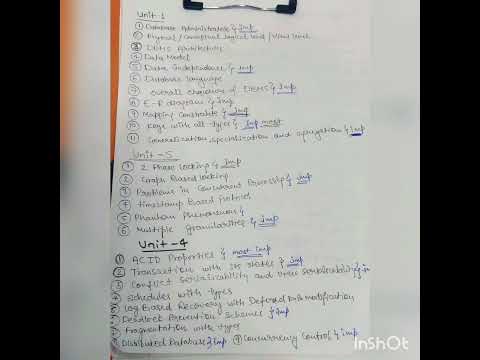 Unit-1
① Database Administrator } imp
② Physical / Conceptual logical level / View level
③ DBMS Architecture
④ Data Model
⑤ Data Independence } imp
⑥ Database language
⑦ overall structure of DBMS } imp
⑧ E-R diagram } imp
⑨ Mapping Constraints } imp
⑩ Keys with all types } imp most
⑪ Generalization, specialization and aggregation } imp
Unit-5
① 2 Phase locking } imp
② Graph Based locking
③ Problems in Concurrent Processing } imp
④ timestamp Based protocol
⑤ Phantom Phenomenon }
⑥ Multiple granularities } imp
Unit-4
① ACID Properties } most imp
② Transaction with its states } imp
③ Conflict serializability and view serializability } im
schedules with types
log Based Recovery with Deferred DB modification
Deadlock Prevention Schemes } imp
fragmentation with types
Distributed Database } imp ⑨ Concurrency Control } imp
InShOt